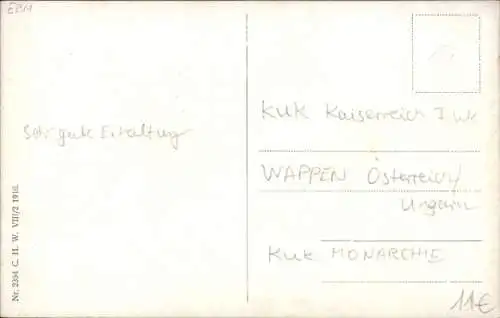 EBM
Sehr gute Erhaltung
KUK Kaiserreich I WK
WAPPEN Österreich
Ungarn
KuK MONARCHIE
11€
Nr. 2394 C. H. W. VIII/2 1916.